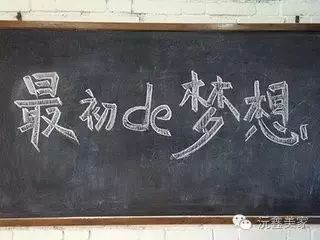 最初de梦想
沅鑫美家